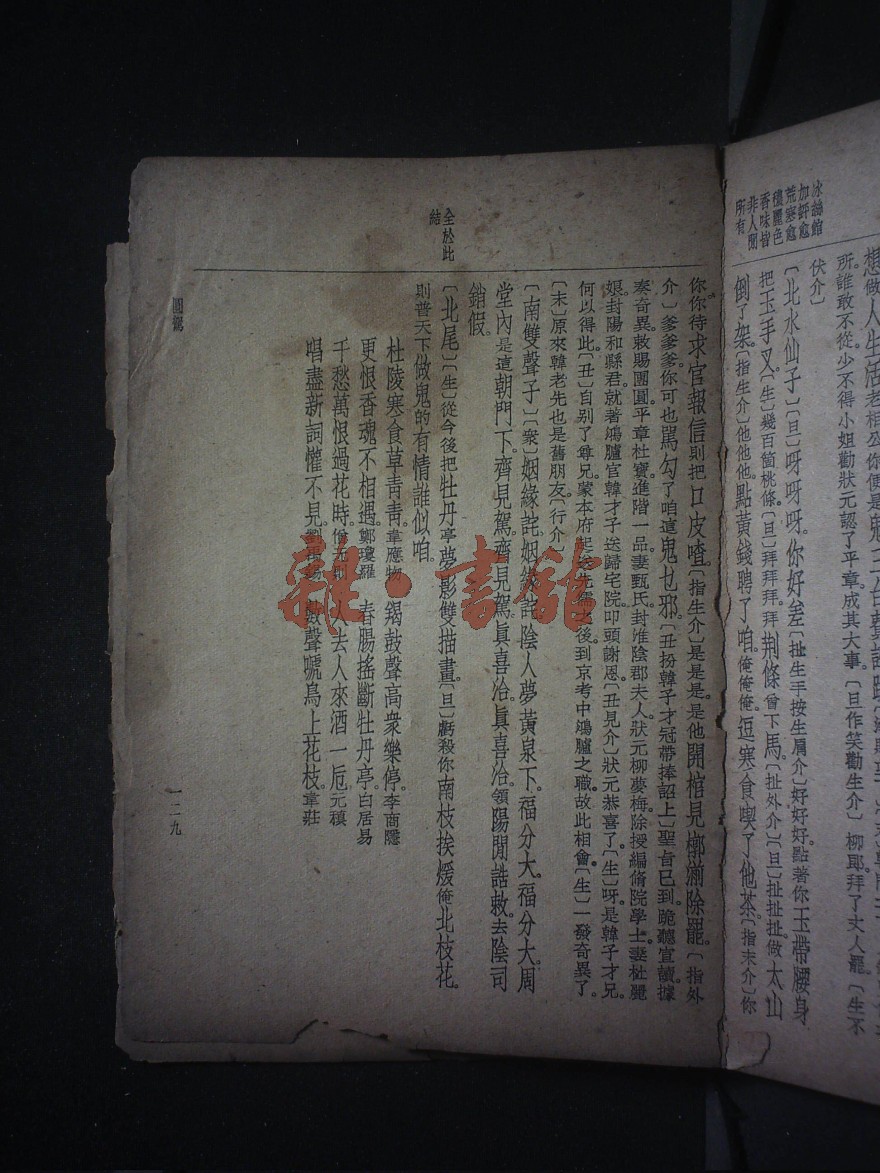 冰絲館
加評愈
荒寒愈
穠麗色
香味皆
非人間
所有
所誰敢不從少不得小姐勸狀元認了平章成其大事〔旦作笑勸生介〕柳郎拜了丈人罷〔生不
伏介〕
〔北水仙子〕〔旦〕呀呀呀你好差〔扯生手按生肩介〕好好好點著你玉帶腰身
把玉手叉〔生〕幾百箇桃條〔旦〕拜拜拜拜荆條曾下馬〔扯外介〕〔旦〕扯扯扯做太山
倒了架〔指生介〕他他他點黃錢聘了咱俺俺俺逗寒食喫了他茶〔指末介〕你
你你待求官報信則把口皮喳〔指生介〕是是是他開棺見槨湔除罷〔指外
介〕爹爹爹你可也駡勾了咱這鬼乜邪〔丑扮韓子才冠帶捧詔上〕聖旨已到跪聽宣讀據
奏奇異敕賜團圓平章杜寶進階一品妻甄氏封淮陰郡夫人狀元柳夢梅除授編脩院學士妻杜麗
娘封陽和縣君就著鴻臚官韓才子送歸宅院叩頭謝恩〔丑見介〕狀元恭喜了〔生〕呀是韓子才兄
何以得此〔丑〕自别了尊兄蒙本府起送先儒之後到京考中鴻臚之職故此相會〔生〕一發奇異了
〔末〕原來韓老先也是舊朋友〔行介〕
〔南雙聲子〕〔衆〕姻緣詫姻緣詫陰人夢黃泉下福分大福分大周
堂內是這朝門下齊見駕齊見駕眞喜洽眞喜洽領陽間誥敕去陰司
銷假
〔北尾〕〔生〕從今後把牡丹亭夢影雙描畫〔旦〕虧殺你南枝挨煖俺北枝花
則普天下做鬼的有情誰似咱
杜陵寒食草青青韋應物 羯鼓聲高衆樂停李商隱
更恨香魂不相遇鄭瓊羅 春腸搖斷牡丹亭白居易
千愁萬恨過花時僧无則 人去人來酒一巵元稹
唱盡新詞懽不見劉禹錫 數聲啼鳥上花枝韋莊
全於此
結
圓駕
一二九
雜·書館